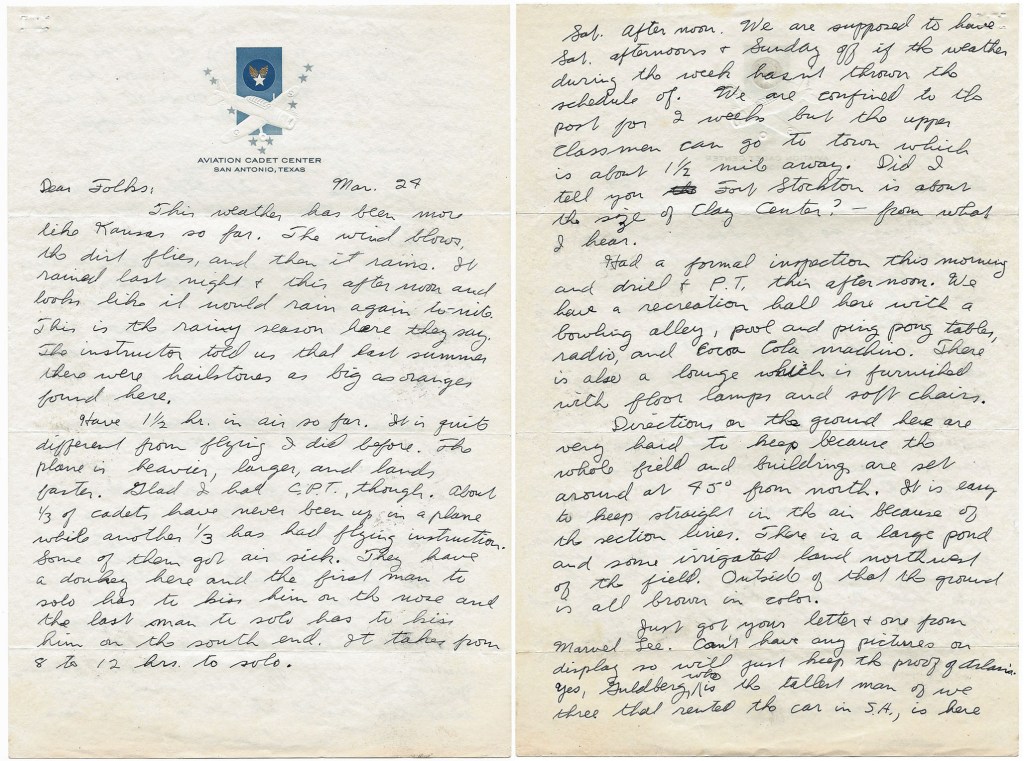 AVIATION CADET CENTER
SAN ANTONIO, TEXAS
Dear Folks:
Mar. 24
This weather has been more
like Kansas so far. The wind blows,
the dirt flies, and then it rains. It
rained last night & this afternoon and
looks like it would rain again to-nite.
This is the rainy season here they say.
The instructor told us that last summer
there were hailstones as big as oranges
found here.
Have 1 1/2 hr. in air so far. It is quite
different from flying I did before. The
plane is heavier, larger, and lands
faster. Glad I had C.P.T., though. About
1/3 of cadets have never been up in a plane
while another 1/3 has had flying instruction.
Some of them got air sick. They have
a donkey here and the first man to
solo has to kiss him on the nose and
the last man to solo has to kiss
him on the south end. It takes from
8 to 12 hrs. to solo.
Sat. afternoon. We are supposed to have
Sat. afternoons & Sunday off if the weather
during the week hasnt thrown the
schedule of. We are confined to the
post for 2 weeks but the upper
classmen can go to town which
is about 1 1/2 mile away. Did I
tell you Fort Stockton is about
the size of Clay Center? — from what
I hear.
Had a formal inspection this morning
and drill & P.T. this afternoon. We
have a recreation hall here with a
bowling alley, pool and ping pong tables,
radio, and Cocoa Cola machine. There
is also a lounge which is furnished
with floor lamps and soft chairs.
Directions on the ground here are
very hard to keep because the
whole field and buildings are set
around at 45° from north. It is easy
to keep straight in the air because of
the section lines. There is a large pond
and some irrigated land northwest
of the field. Outside of that the ground
is all brown in color.
Just got your letter & one from
Marvel Lee. Can't have any pictures on
display so will just keep the proof of
Yes, Guldberg, who is the tallest man of we
three that rented the car in S.A., is here